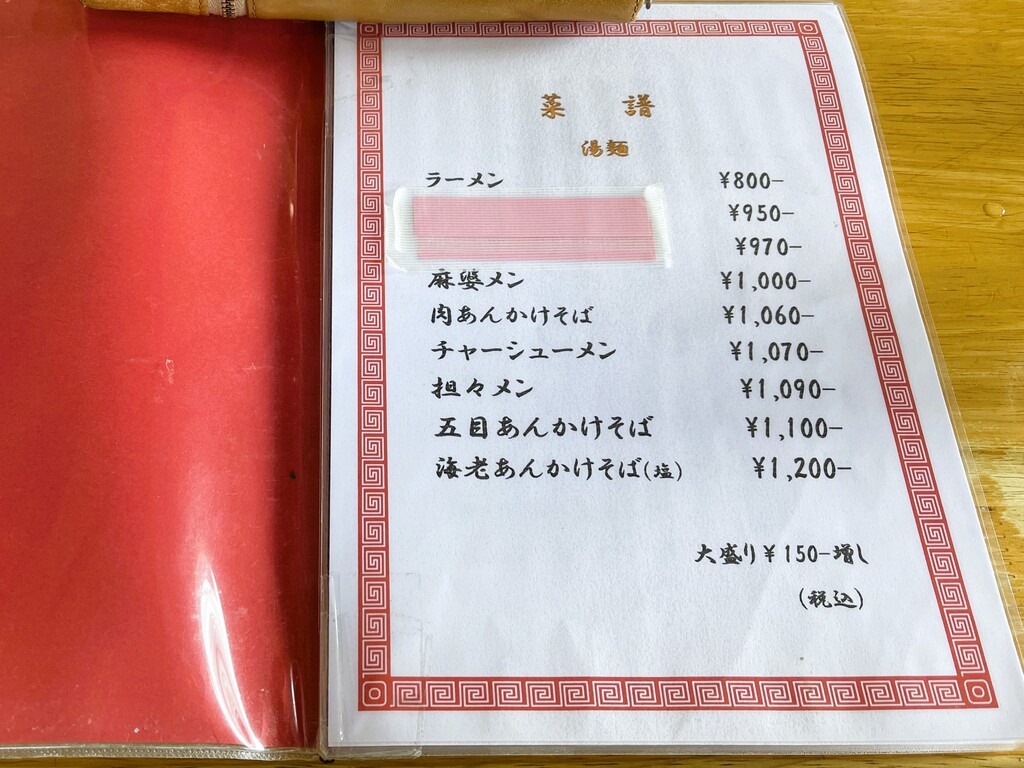 菜 譜
湯麺
ラーメン ¥800-
¥950-
¥970-
麻婆メン ¥1,000-
肉あんかけそば ¥1,060-
チャーシューメン ¥1,070-
担々メン ¥1,090-
五目あんかけそば ¥1,100-
海老あんかけそば(塩) ¥1,200-
大盛り¥150-増し
(税込)